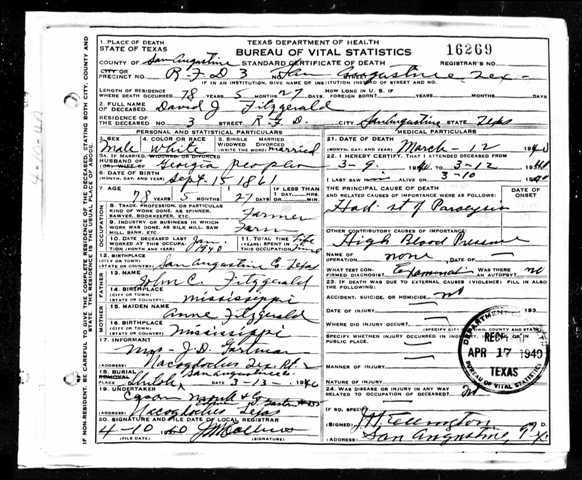 TEXAS DEPARTMENT OF HEALTH
BUREAU OF VITAL STATISTICS
STANDARD CERTIFICATE OF DEATH
16269
1. PLACE OF DEATH
STATE OF TEXAS
COUNTY OF San Augustine
REGISTRAR'S NO.
CITY OR PRECINCT NO. R-F D 3 San Augustine, Tex-
LENGTH OF RESIDENCE WHERE DEATH OCCURRED 78 YEARS 5 MONTHS 27 DAYS
HOW LONG IN U.S. IF FOREIGN BORN? YEARS MONTHS DAYS
2. FULL NAME OF DECEASED David J Fitzgerald
RESIDENCE OF THE DECEASED NO. 3 STREET R.F.D. CITY San Augustine STATE Texas
PERSONAL AND STATISTICAL PARTICULARS
3. SEX Male
4. COLOR OR RACE White
5. SINGLE MARRIED WIDOWED DIVORCED (WRITE THE WORD) Married
5A. IF MARRIED, WIDOWED OR DIVORCED HUSBAND OF (OR) WIFE OF Georgia
6. DATE OF BIRTH (MONTH, DAY, AND YEAR) Sept 15 1861
7. AGE 78 YEARS 5 MONTHS 27 DAYS
IF LESS THAN 1 DAY
8. TRADE, PROFESSION, OR PARTICULAR KIND OF WORK DONE, AS SPINNER, SAWYER, BOOKKEEPER, ETC. Farmer
9. INDUSTRY OR BUSINESS IN WHICH WORK WAS DONE, AS SILK MILL, SAW MILL, BANK, ETC. Farm
10. DATE DECEASED LAST WORKED AT THIS OCCUPATION (MONTH AND YEAR) Jan
11. TOTAL TIME (YEARS) SPENT IN THIS OCCUPATION Life
12. BIRTHPLACE (CITY OR TOWN) (STATE OR COUNTRY) San Augustine Co Texas
FATHER
13. NAME John C. Fitzgerald
14. BIRTHPLACE (CITY OR TOWN) (STATE OR COUNTRY) Mississippi
MOTHER
15. MAIDEN NAME Anne Fitzgerald
16. BIRTHPLACE (CITY OR TOWN) (STATE OR COUNTRY) Mississippi
17. INFORMANT Mrs J.D.
ADDRESS Nacogdoches Tex Rt
18. BURIAL San Augustine Co.
PLACE DATE 3-13 1940
19. UNDERTAKER Cason
ADDRESS Nacogdoches Texas
20. SIGNATURE AND FILE DATE OF LOCAL REGISTRAR
4-10 1940
(FILE DATE) (SIGNATURE)
MEDICAL PARTICULARS
21. DATE OF DEATH (MONTH, DAY AND YEAR) March-12 1940
22. I HEREBY CERTIFY, THAT I ATTENDED DECEASED FROM 3-9 1940 TO 3-12 1940
I LAST SAW ALIVE ON 3-10 1940
THE PRINCIPAL CAUSE OF DEATH AND RELATED CAUSES OF IMPORTANCE WERE AS FOLLOWS:
DATE OF ONSET
Had st of Paralysis
OTHER CONTRIBUTORY CAUSES OF IMPORTANCE WERE:
High Blood Pressure
NAME OF OPERATION none DATE OF
WHAT TEST CONFIRMED DIAGNOSIS? WAS THERE AN AUTOPSY? no
23. IF DEATH WAS DUE TO EXTERNAL CAUSES (VIOLENCE) FILL IN ALSO THE FOLLOWING:
ACCIDENT, SUICIDE, OR HOMICIDE
DATE OF INJURY 193
WHERE DID INJURY OCCUR?
(SPECIFY CITY OR TOWN, COUNTY AND STATE)
SPECIFY WHETHER INJURY OCCURRED IN INDUSTRY, IN HOME, OR IN PUBLIC PLACE.
MANNER OF INJURY
NATURE OF INJURY
24. WAS DISEASE OR INJURY IN ANY WAY RELATED TO OCCUPATION OF DECEASED?
IF SO, SPECIFY
SIGNED
ADDRESS San Augustine, Tx.
DEPARTMENT OF HEALTH
REC'D
APR 17 1940
TEXAS
BUREAU OF VITAL STATISTICS
4-10-40